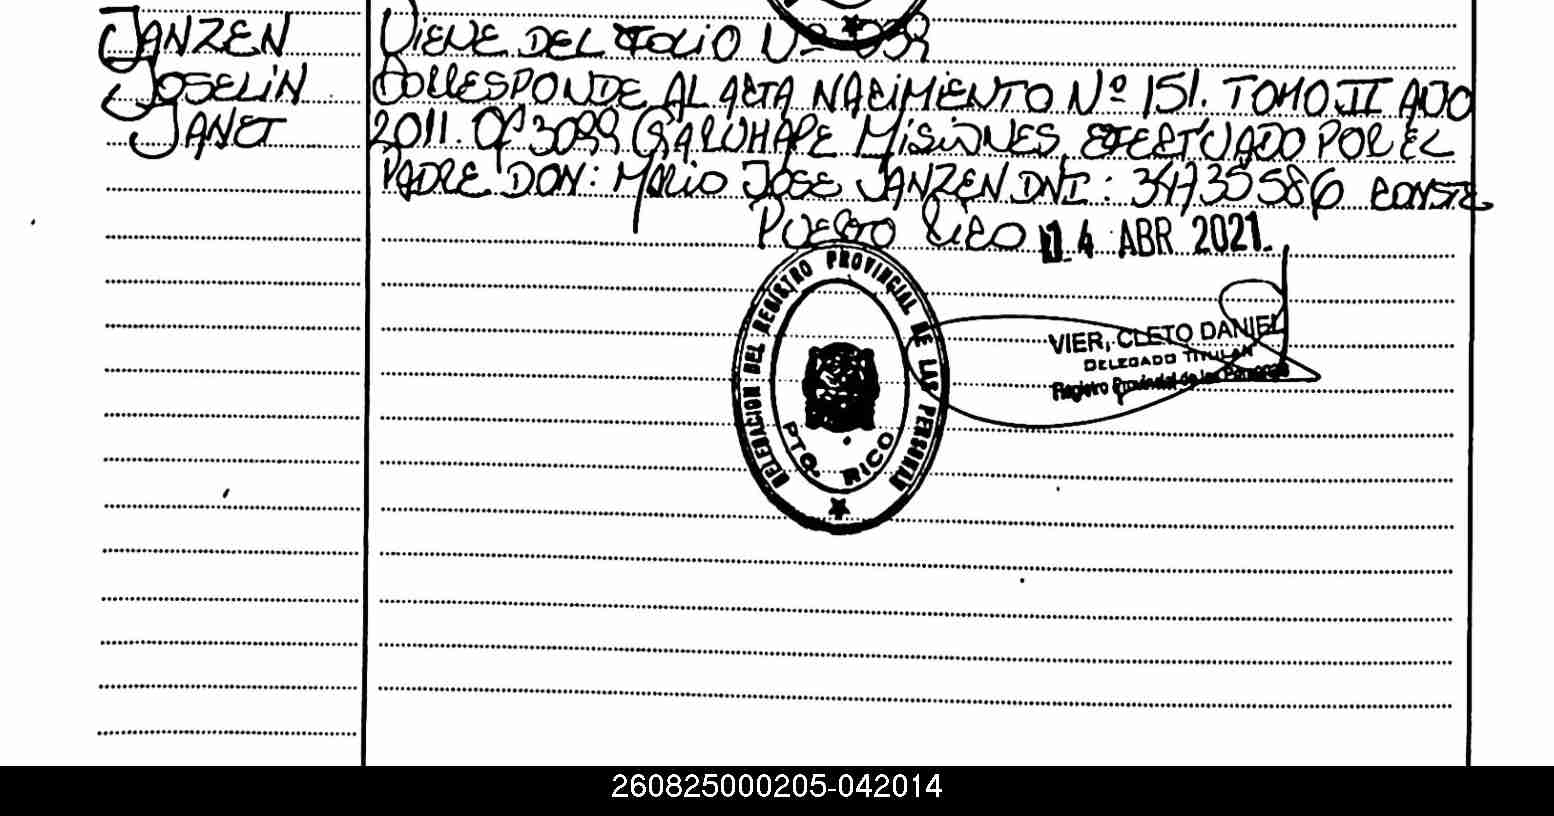 JANZEN
JOSELIN
JANET
VIENE DEL FOLIO Nº
CORRESPONDE AL ACTA NACIMIENTO Nº 151. TOMO II AÑO
2011. OF 3099 GARUHAPE MISIONES EFECTUADO POR EL
PADRE DON: MARIO JOSE JANZEN DNI: 34735586 CONSTE
PUERTO RICO 14 ABR 2021
DELEGACION DEL REGISTRO PROVINCIAL DE LAS PERSONAS
PTO. RICO
VIER, CLETO DANIEL
DELEGADO TITULAR
Registro Provincial de las Personas
260825000205-042014